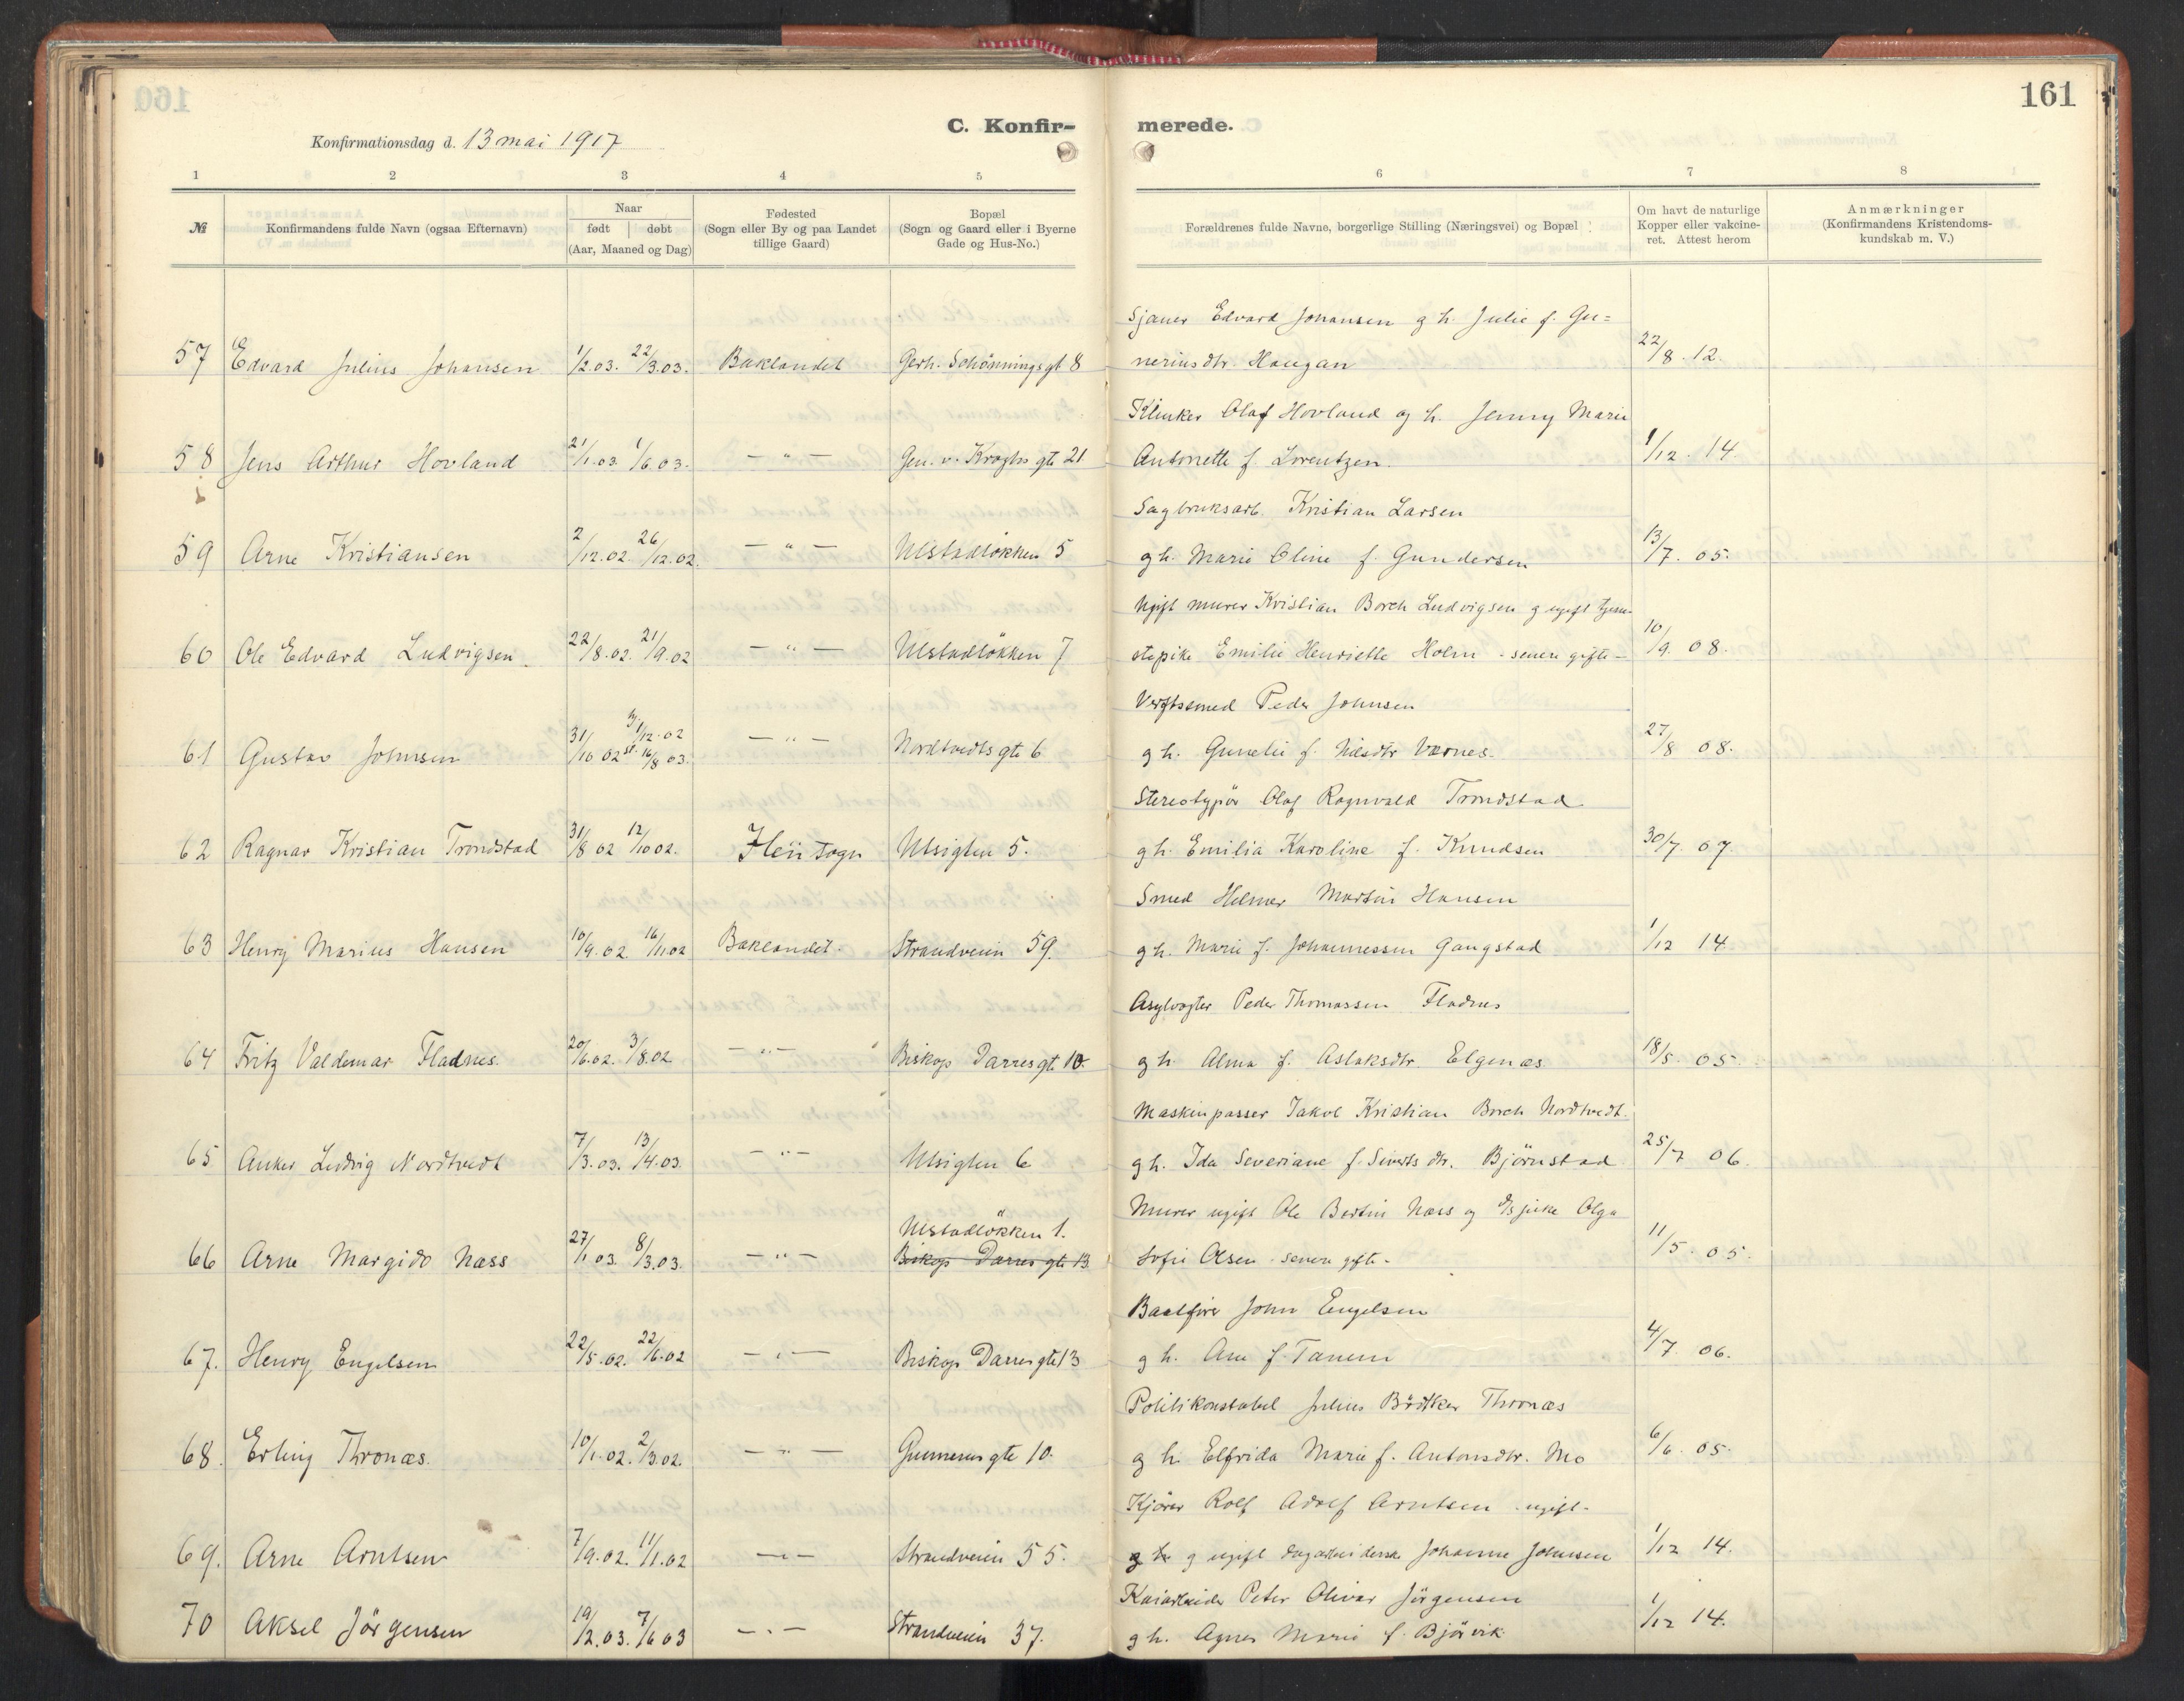 160
161
C. Konfir-
merede.
Konfirmationsdag d. 13 mai 1917
1 2 3 4 5 6 7 8
№
Konfirmandens fulde Navn (ogsaa Efternavn)
Naar
født døbt
(Aar, Maaned og Dag)
Fødested
(Sogn eller By og paa Landet
tillige Gaard)
Bopæl
(Sogn og Gaard eller i Byerne
Gade og Hus-No.)
Forældrenes fulde Navne, borgerlige Stilling (Næringsvei) og Bopæl
Om havt de naturlige
Kopper eller vakcine-
ret. Attest herom
Anmærkninger
(Konfirmandens Kristendoms-
kundskab m. V.)
Sjauer Edvard Johansen g h. Julie f. Gu=
57 Edvard Julius Johansen 1/2.03. 22/3.03. Baklandet Gerh. Schönningsgt 8 neriusdtr. Haugan 22/8. 12.
Klinker Olaf Hovland og h. Jenny Marie
58 Jens Arthur Hovland 21/1.03. 1/6.03. — " — Gen. v. Kroghs gt 21 Antonette f. Lorentzen. 1/12. 14.
Sagbruksarb. Kristian Larsen
59 Arne Kristiansen 2/12.02. 26/12.02. — " — Ulstadløkken 5 g h. Marie Oline f. Gundersen 13/7. 05.
Ugift murer Kristian Borch Ludvigsen g ugift tjene-
60 Ole Edvard Ludvigsen. 22/8.02. 21/9.02 — " — Ulstadløkken 7 stepike Emilie Henriette Holm - senere gifte - 10/9. 08.
Verftssmed Peder Johnsen
61 Gustav Johnsen 31/10 02 /12.02 st. 16/8 03. — " — Nordtvedts gt. 6 g h. Gunelie f. Nilsdtr Værnes. 27/8 08.
Stereotypör Olaf Ragnvald Trondstad
62 Ragnar Kristian Trondstad 31/8 02 12/10 02. Ilen sogn Utsigten 5. g h. Emilia Karoline f. Knudsen 30/7. 07.
Smed Helmer Martin Hansen
63 Henry Marius Hansen 10/9.02. 16/11.02 Baklandet. Strandveien 59. g h. Marie f. Johannessen Gangstad 1/12 14.
Asylvogter Peder Thomassen Fladnes
64 Fritz Valdemar Fladnes. 20/6.02. 3/8.02 — " — Biskop Darres gt. 10. g h. Alma f. Aslaksdtr. Elgenæs 18/5. 05.
Maskinpasser Jakob Kristian Borch Nordtvedt.
65 Anker Ludvig Nordtvedt 7/3.03. 13/4.03. — " — Utsigten 6 g h. Ida Severiane f. Siverts dtr. Björnstad 25/7 06.
Murer ugift Ole Bertin Næss og pike Olga
Ulstadløkken 1.
66 Arne Margido Næss 27/1 03. 8/3.03. — " — Biskop Darres gt. 13. Sofie Olsen - senere gifte - 11/5. 05.
Baatfører John Engelsen
67. Henry Engelsen 22/5.02. 22/6.02 — " — Biskop Darres gt 13 g h. Ane f. Tanem 4/7. 06.
Politikonstabel Julius Bödtker Thronæs
68. Erling Thronæs. 10/1.02. 2/3.02. — " — Gunnerus gt 10. g h. Elfrida Marie f. Antonsdtr. Mo 6/6. 05.
Kjörer Rolf Adolf Arntsen - ugift -
69. Arne Arntsen 7/9.02. 11/1.02 — " — Strandveien 55. g h g ugift dagarbeiderske Johanne Johnsen 1/12 14.
Kaiarbeider Peter Olivar Jörgensen
70 Aksel Jörgensen 19/2.03. 7/6 03 — " — Strandveien 37. g h. Agnes Marie f. Björvik 1/12 14.